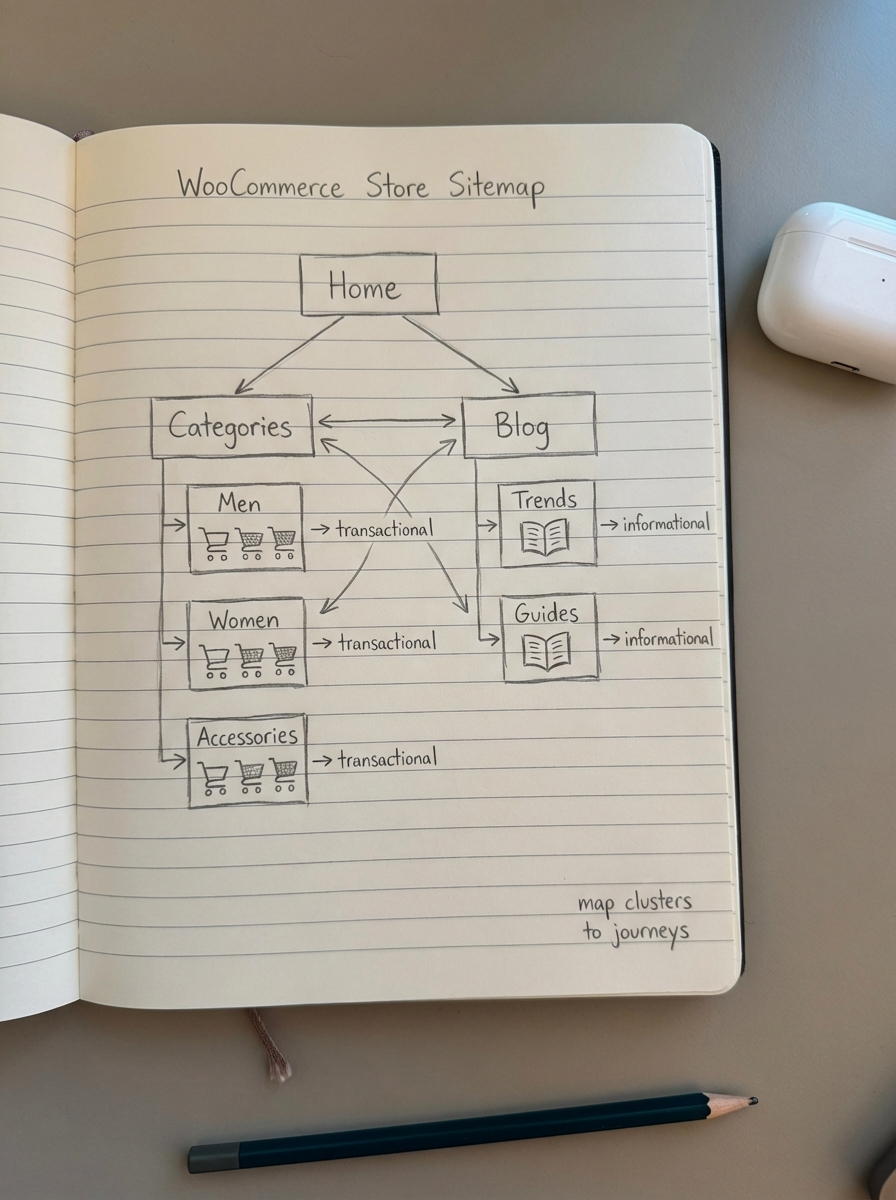 WooCommerce Store Sitemap
Home
Categories
Blog
Men
→ transactional
Trends
→ informational
Women
→ transactional
Guides
→ informational
Accessories
→ transactional
map clusters
to journeys